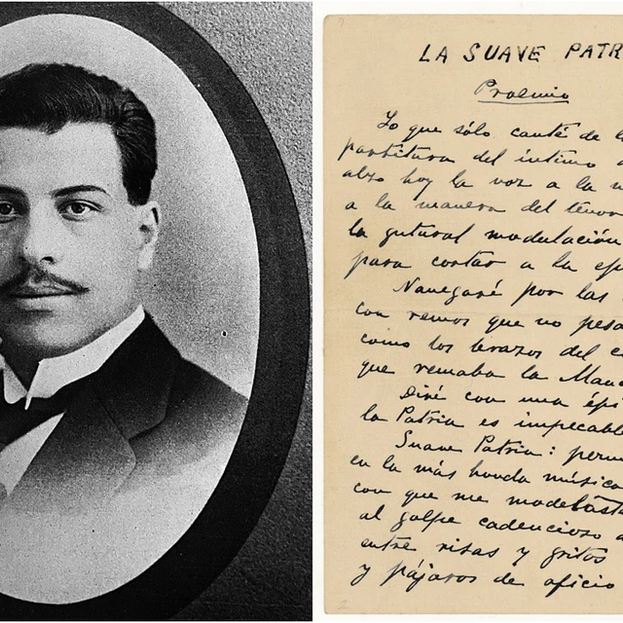 LA SUAVE PATR
Proemio
Yo que sólo canté de l
partitura del íntimo d
alzo hoy la voz a la m
a la manera del tenor
la gutural modulación
para cortar a la ep
Navegaré por las
con remos que no pesa
como los brazos del c
que remaba la Man
Diré con una épi
la Patria es impecable
Suave Patria: perm
en la más honda música
con que me modelasta
al golpe cadencioso d
entre risas y gritos
y pájaros de oficio